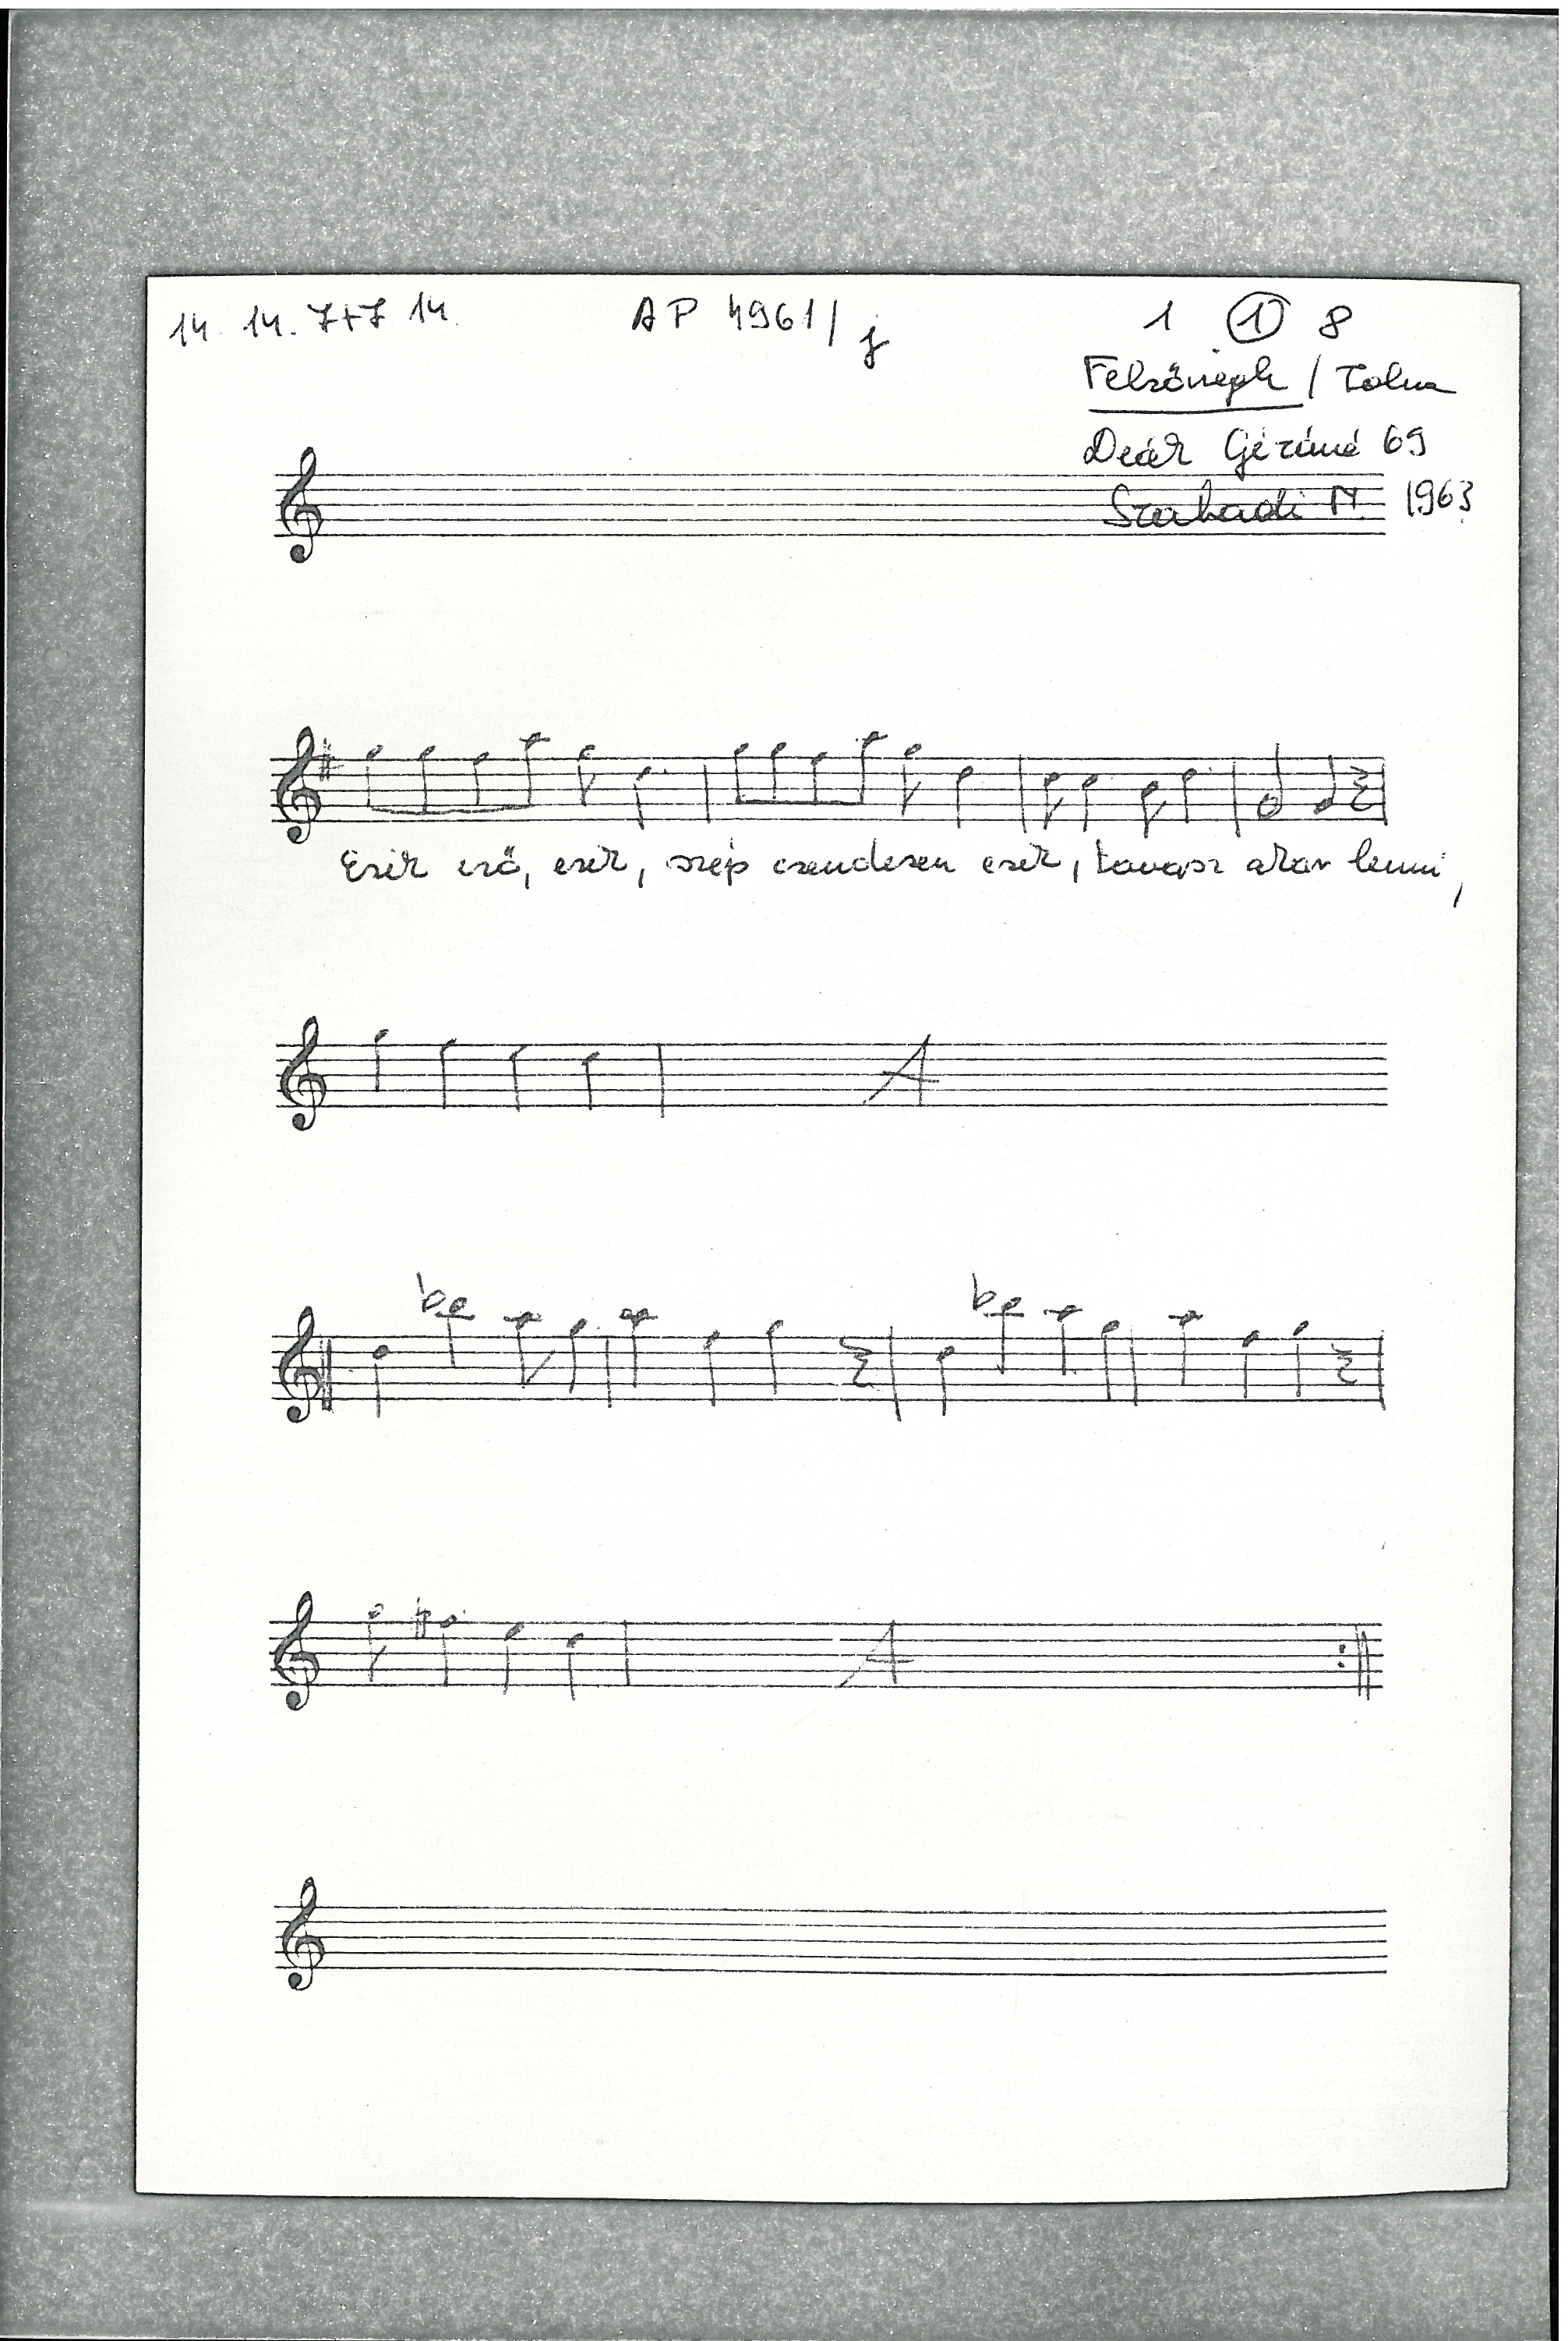 14 14. 7+7 14. AP 4961/j 1 1 8
Felsőnyék / Tolna
Deák Gézáné 69
Szabadi M. 1963
Esik eső, esik, szép csendesen esik, tavasz akar lenni,
A
A